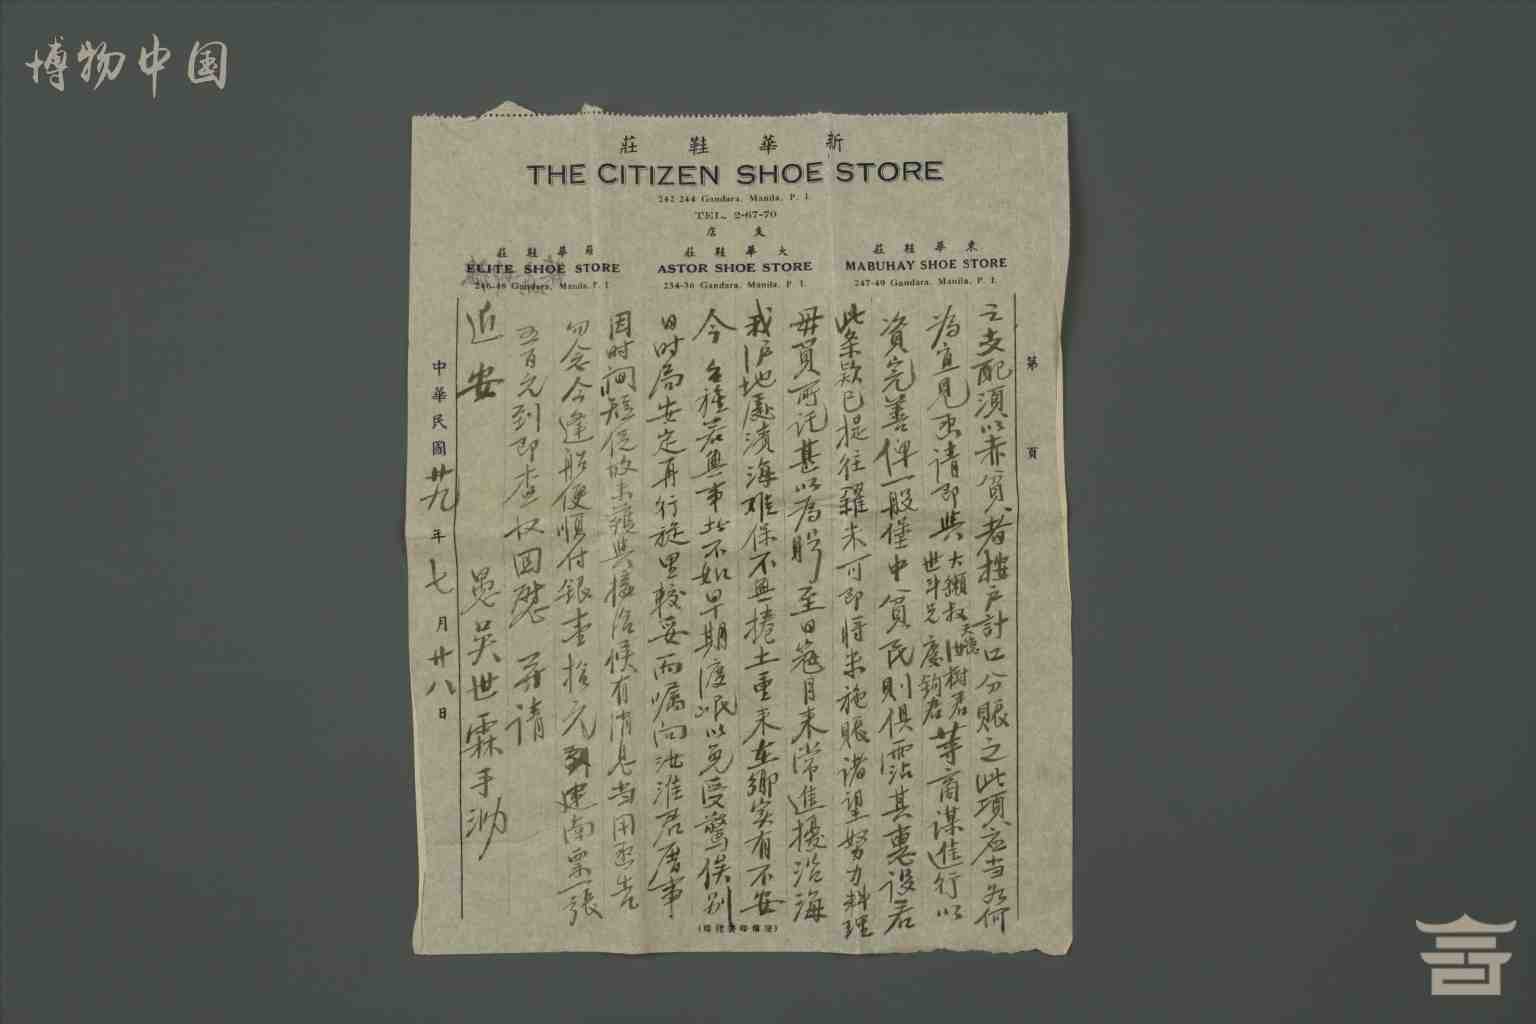 博物中国
新華鞋莊
THE CITIZEN SHOE STORE
242-244 Gandara, Manila, P. I.
TEL. 2-67-70
支店
東華鞋莊
MABUHAY SHOE STORE
247-49 Gandara, Manila, P. I.
大華鞋莊
ASTOR SHOE STORE
234-36 Gandara, Manila, P. I.
華鞋莊
ELITE SHOE STORE
246-48 Gandara, Manila, P. I.
第 頁
之支配須以赤貧者按户計口分賬之此項应当如何
為宜見函請即與大獭叔世斗兄 樹君慶鈎君等商謀進行以
資完善俾一般僅中貧民則俱霑其惠設若
此条款已提往羅米可即將米施賬諸望努力料理
毋負所託甚以為盼 至日寇月来常進擾沿海
我沪地處濱海难保不無捲土重来在鄉实有不安
今 台種若無事者不如早期渡岷以免受驚俟別
日時局安定再行旋里較妥而嘱向汝淮君厝事
因时间短促故未獲與接洽候有消息当用函告
勿念今逢船便順付銀壹拾元到建南票一張
五百元到即查收回慰 并請
近安
愚吳世霖手泐
中華民國廿九年七月廿八日